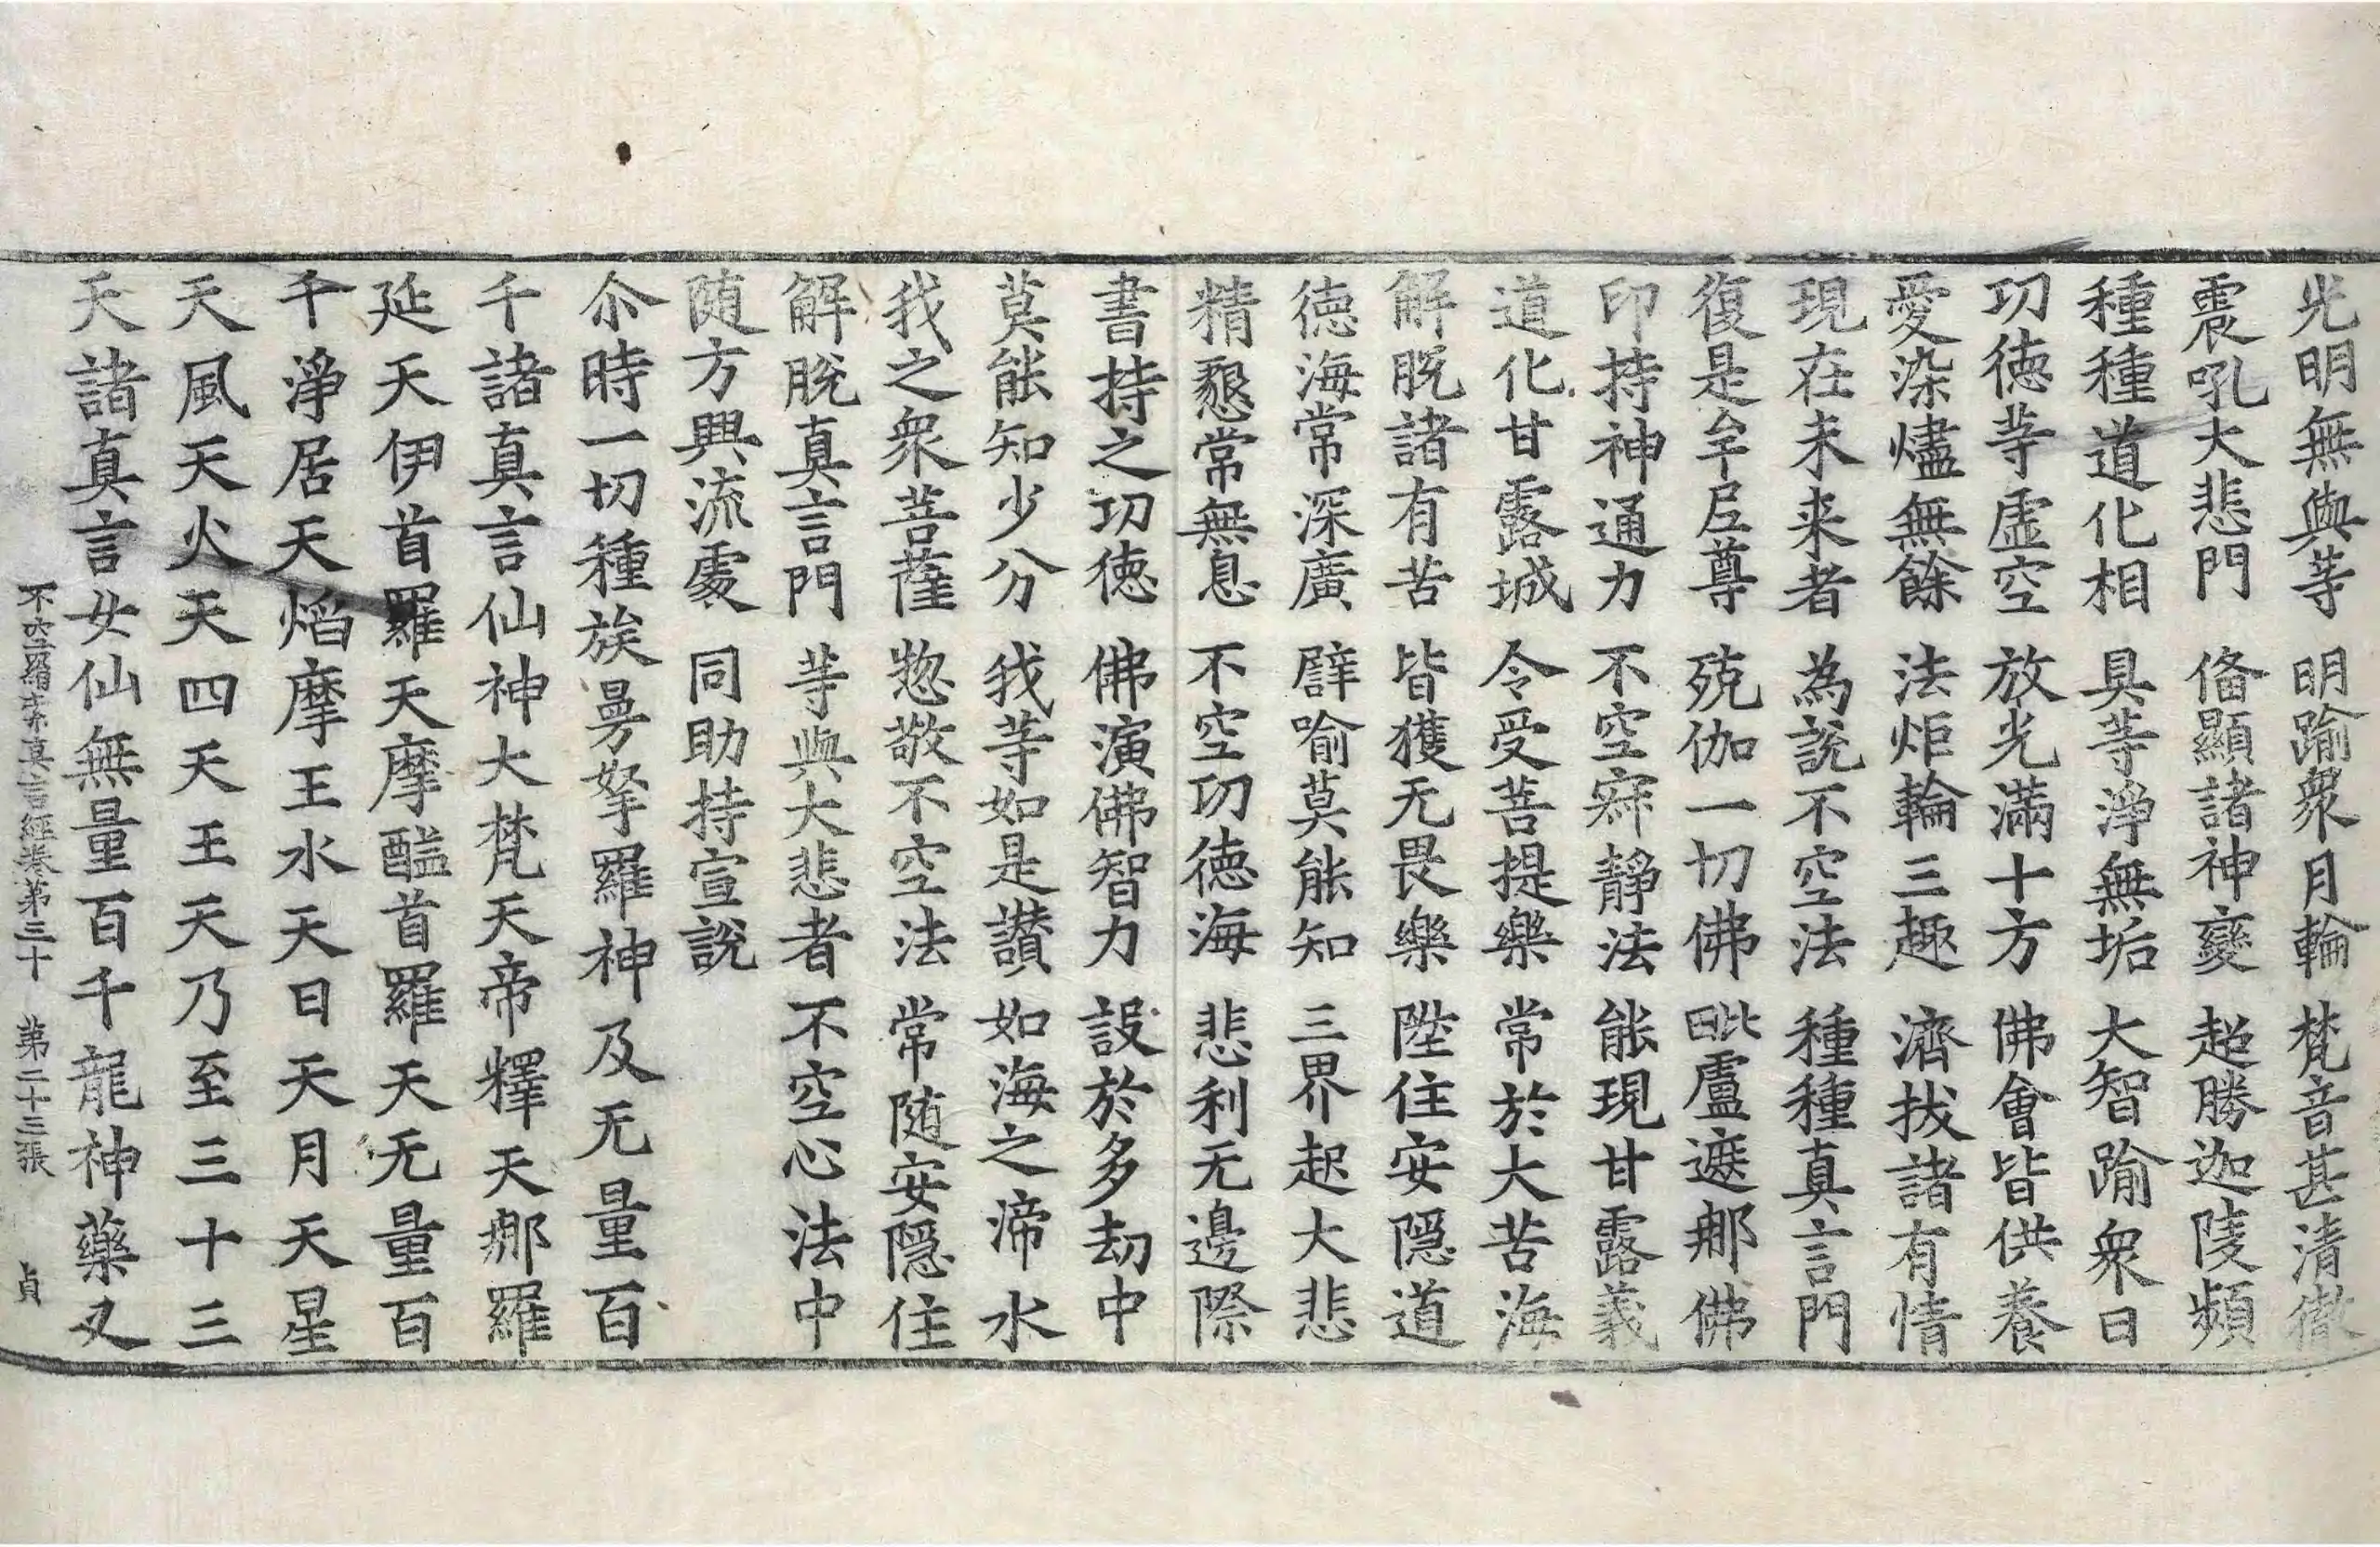 光明無與等　明踰衆月輪　梵音甚清徹
震吼大悲門　俻顯諸神變　超勝迦陵頻
種種道化相　具等淨無垢　大智踰衆日
功徳等虛空　放光滿十方　佛會皆供養
愛染燼無餘　法炬輪三趣　濟拔諸有情
現在未来者　為說不空法　種種真言門
復是牟尼尊　殑伽一切佛　毗盧遮那佛
印持神通力　不空寂靜法　能現甘露義
道化甘露城　令受菩提樂　常於大苦海
解脫諸有苦　皆獲无畏樂　陞住安隱道
徳海常深廣　譬喻莫能知　三界起大悲
精懇常無息　不空功徳海　悲利无邊際
書持之功徳　佛演佛智力　設於多劫中
莫能知少分　我等如是讃　如海之渧水
我之衆菩薩　惣敬不空法　常随安隱住
解脫真言門　等與大悲者　不空心法中
随方興流處　同助持宣說
尒時一切種族曼拏羅神及无量百
千諸真言仙神大梵天帝釋天那羅
延天伊首羅天摩醯首羅天无量百
千淨居天焰摩王水天日天月天星
天風天火天四天王天乃至三十三
天諸真言女仙無量百千龍神藥叉
不空羂索真言經卷第三十　第二十三張　貞